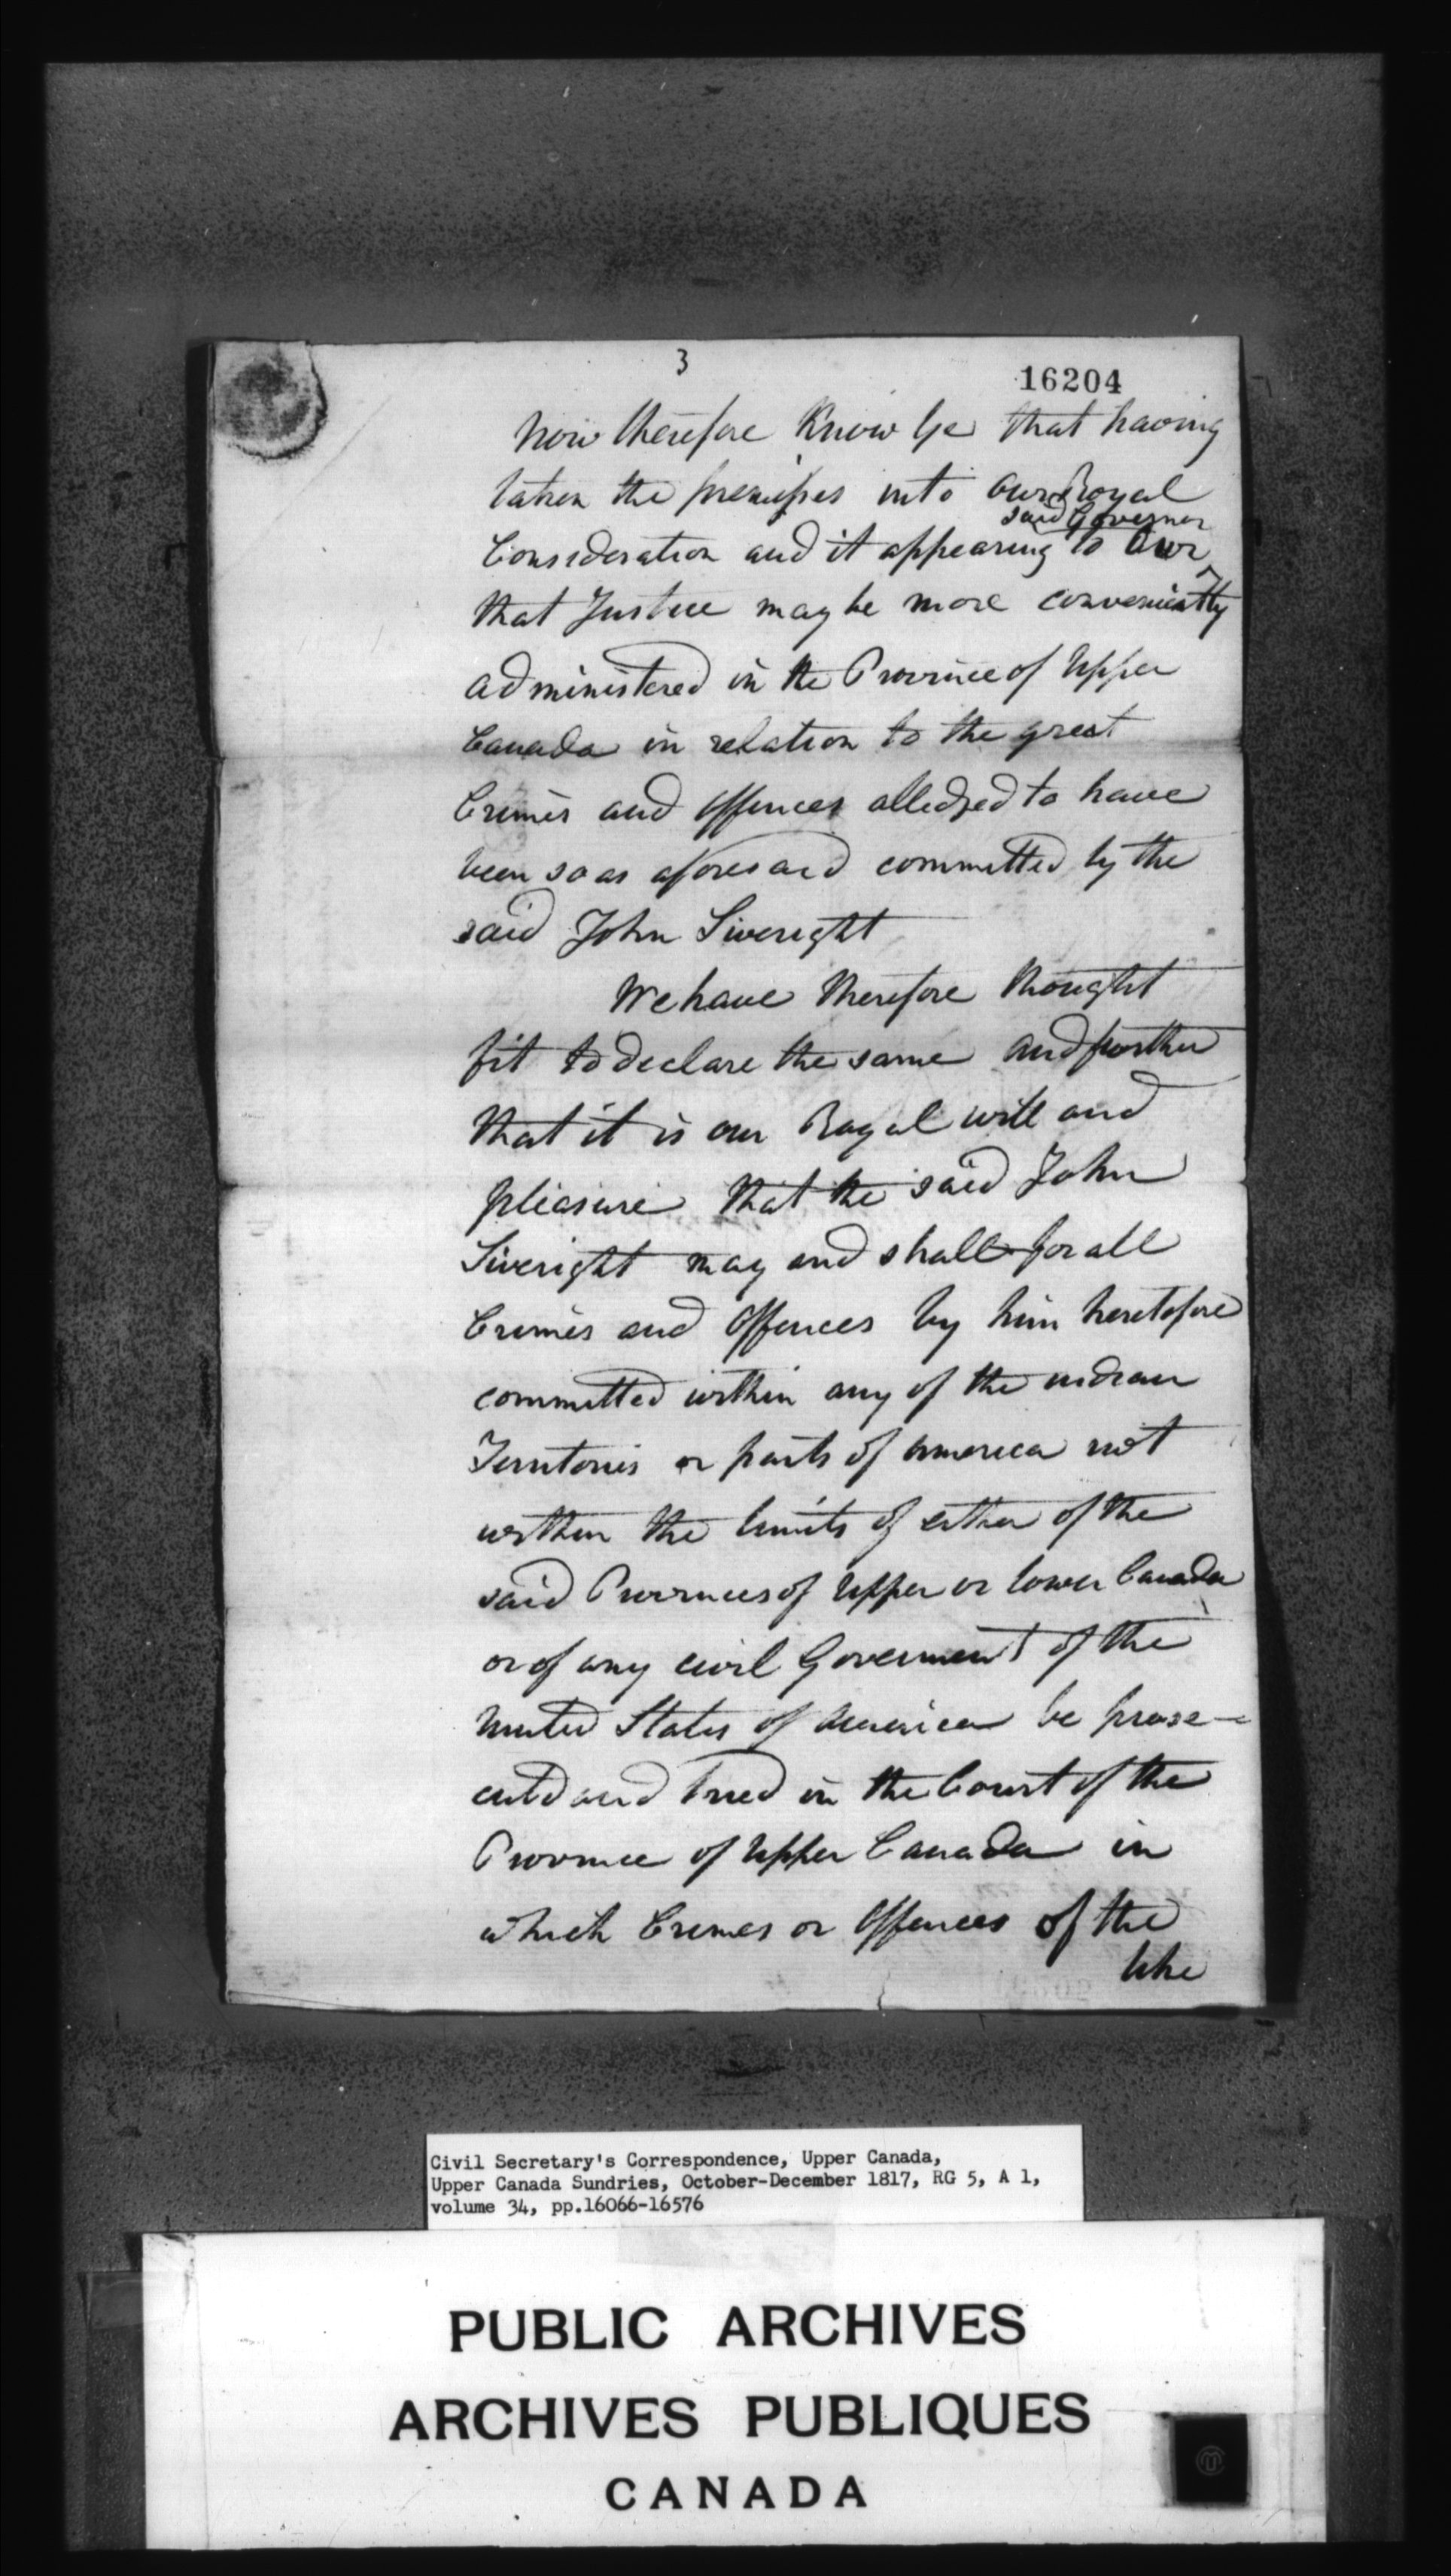 3
16204
Now therefore Know Ye that having
taken the premises into Our Royal
said Governor
Consideration and it appearing to Our
that Justice may be more conveniently
administered in the Province of Upper
Canada in relation to the great
Crimes and Offences alledged to have
been so as aforesaid committed by the
said John Siveright
We have therefore thought
fit to declare the same and further
that it is our Royal will and
pleasure that the said John
Siveright may and shall for all
Crimes and Offences by him heretofore
committed within any of the indian
Territories or parts of America not
within the limits of either of the
said Provinces of Upper or Lower Canada
or of any civil Goverment of the
United States of America be prose-
cuted and tried in the Court of the
Province of Upper Canada in
which Crimes or Offences of the
like
Civil Secretary's Correspondence, Upper Canada,
Upper Canada Sundries, October-December 1817, RG 5, A 1,
volume 34, pp.16066-16576
PUBLIC ARCHIVES
ARCHIVES PUBLIQUES
CANADA